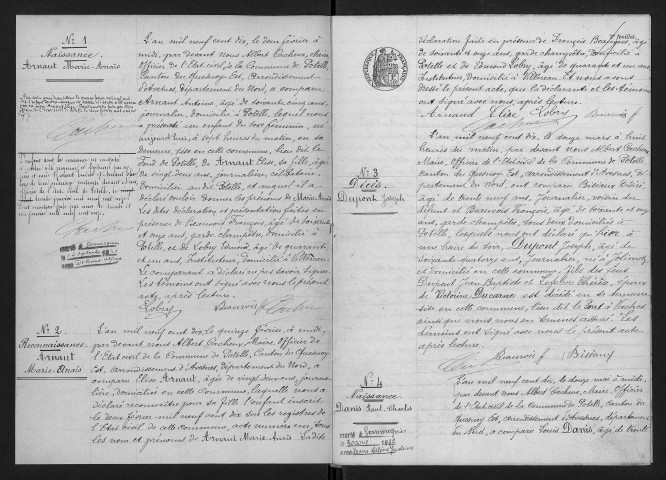 N° 1
Naissance.
Arnaut Marie-Anaïs
L'an mil neuf cent dix, le deux février à
midi, par devant nous Albert Cacheux, Maire,
Officier de l'Etat civil de la Commune de Potelle,
Canton du Quesnoy Est, Arrondissement
d'Avesnes, Département du Nord, a comparu
Arnaut Antoine, âgé de soixante cinq ans,
journalier, domicilié à Potelle, lequel nous
a présenté un enfant du sexe féminin, né
aujourd'hui, à sept heures du matin, en sa
demeure, sise en cette commune, lieu dit le
Fond de Potelle, de Arnaut Elise, sa fille, âgée
de vingt deux ans, journalière, célibataire,
domiciliée audit Potelle, et auquel il a
déclaré vouloir donner les prénoms de Marie-Anaïs
Les dites déclaration et présentation faites en
présence de Beauvois François, âgé de soixante
et onze ans, garde champêtre, domicilié à
Potelle, et de Lobry Edmond, âgé de quarante
et un ans, Instituteur, domicilié à Villereau.
Le comparant a déclaré ne pas savoir signer.
Les témoins ont signé avec nous le présent
acte, après lecture.
Lobry Beauvois f Cacheux
N° 2
Reconnaissance
Arnaut
Marie-Anaïs
L'an mil neuf cent dix, le quinze février, à midi,
par devant nous Albert Cacheux, Maire, Officier de
l'Etat civil de la Commune de Potelle, Canton du Quesnoy
Est, arrondissement d'Avesnes, département du Nord, a
comparu Elise Arnaut, âgée de vingt deux ans, journa-
lière, domiciliée en cette Commune, laquelle nous a
déclaré reconnaître pour sa fille l'enfant inscrit
le deux février mil neuf cent dix sur les registres de
l'Etat civil de cette commune, acte numéro un, sous
les nom et prénoms de Arnaut Marie-Anaïs. La dite
feuillet.
déclaration faite en présence de François Beauvois, âgé
de soixante et onze ans, garde champêtre, domicilié à
Potelle et de Edmond Lobry, âgé de quarante et un ans,
Instituteur, domicilié à Villereau. Et nous avons
dressé le présent acte, que la déclarante et les témoins
ont signé avec nous, après lecture.
Arnaud Elise Lobry Beauvois f
N° 3
Décès.
Dupont Joseph
L'an mil neuf cent dix, le douze mars à huit
heures du matin, par devant nous Albert Cacheux,
Maire, Officier de l'Etat civil de la Commune de Potelle
Canton du Quesnoy Est, arrondissement d'Avesnes, dé-
partement du Nord, ont comparu
âgé de trente neuf ans, Journalier, voisin du
défunt et Beauvois François, âgé de soixante et onze
ans, garde champêtre, tous deux domiciliés à
Potelle, lesquels nous ont déclaré qu'hier à
une heure du soir, Dupont Joseph, âgé de
soixante quatorze ans, Journalier, né à
et domicilié en cette commune, fils des feus
Dupont Jean Baptiste et Lefebvre Thérèse, époux
de Victorine Ducarne est décédé en sa demeure
sise en cette commune, lieu dit le Fort à Vaches
ainsi que nous nous en sommes assuré. Les
témoins ont signé avec nous le présent acte
après lecture.
Beauvois f
N° 4
Naissance
Danis Paul-Charles
L'an mil neuf cent dix, le douze mars à midi,
par devant nous Albert Cacheux, Maire, Officier
de l'Etat civil de la Commune de Potelle, canton du
Quesnoy Est, arrondissement d'Avesnes, département
du Nord, a comparu Louis Danis, âgé de trente